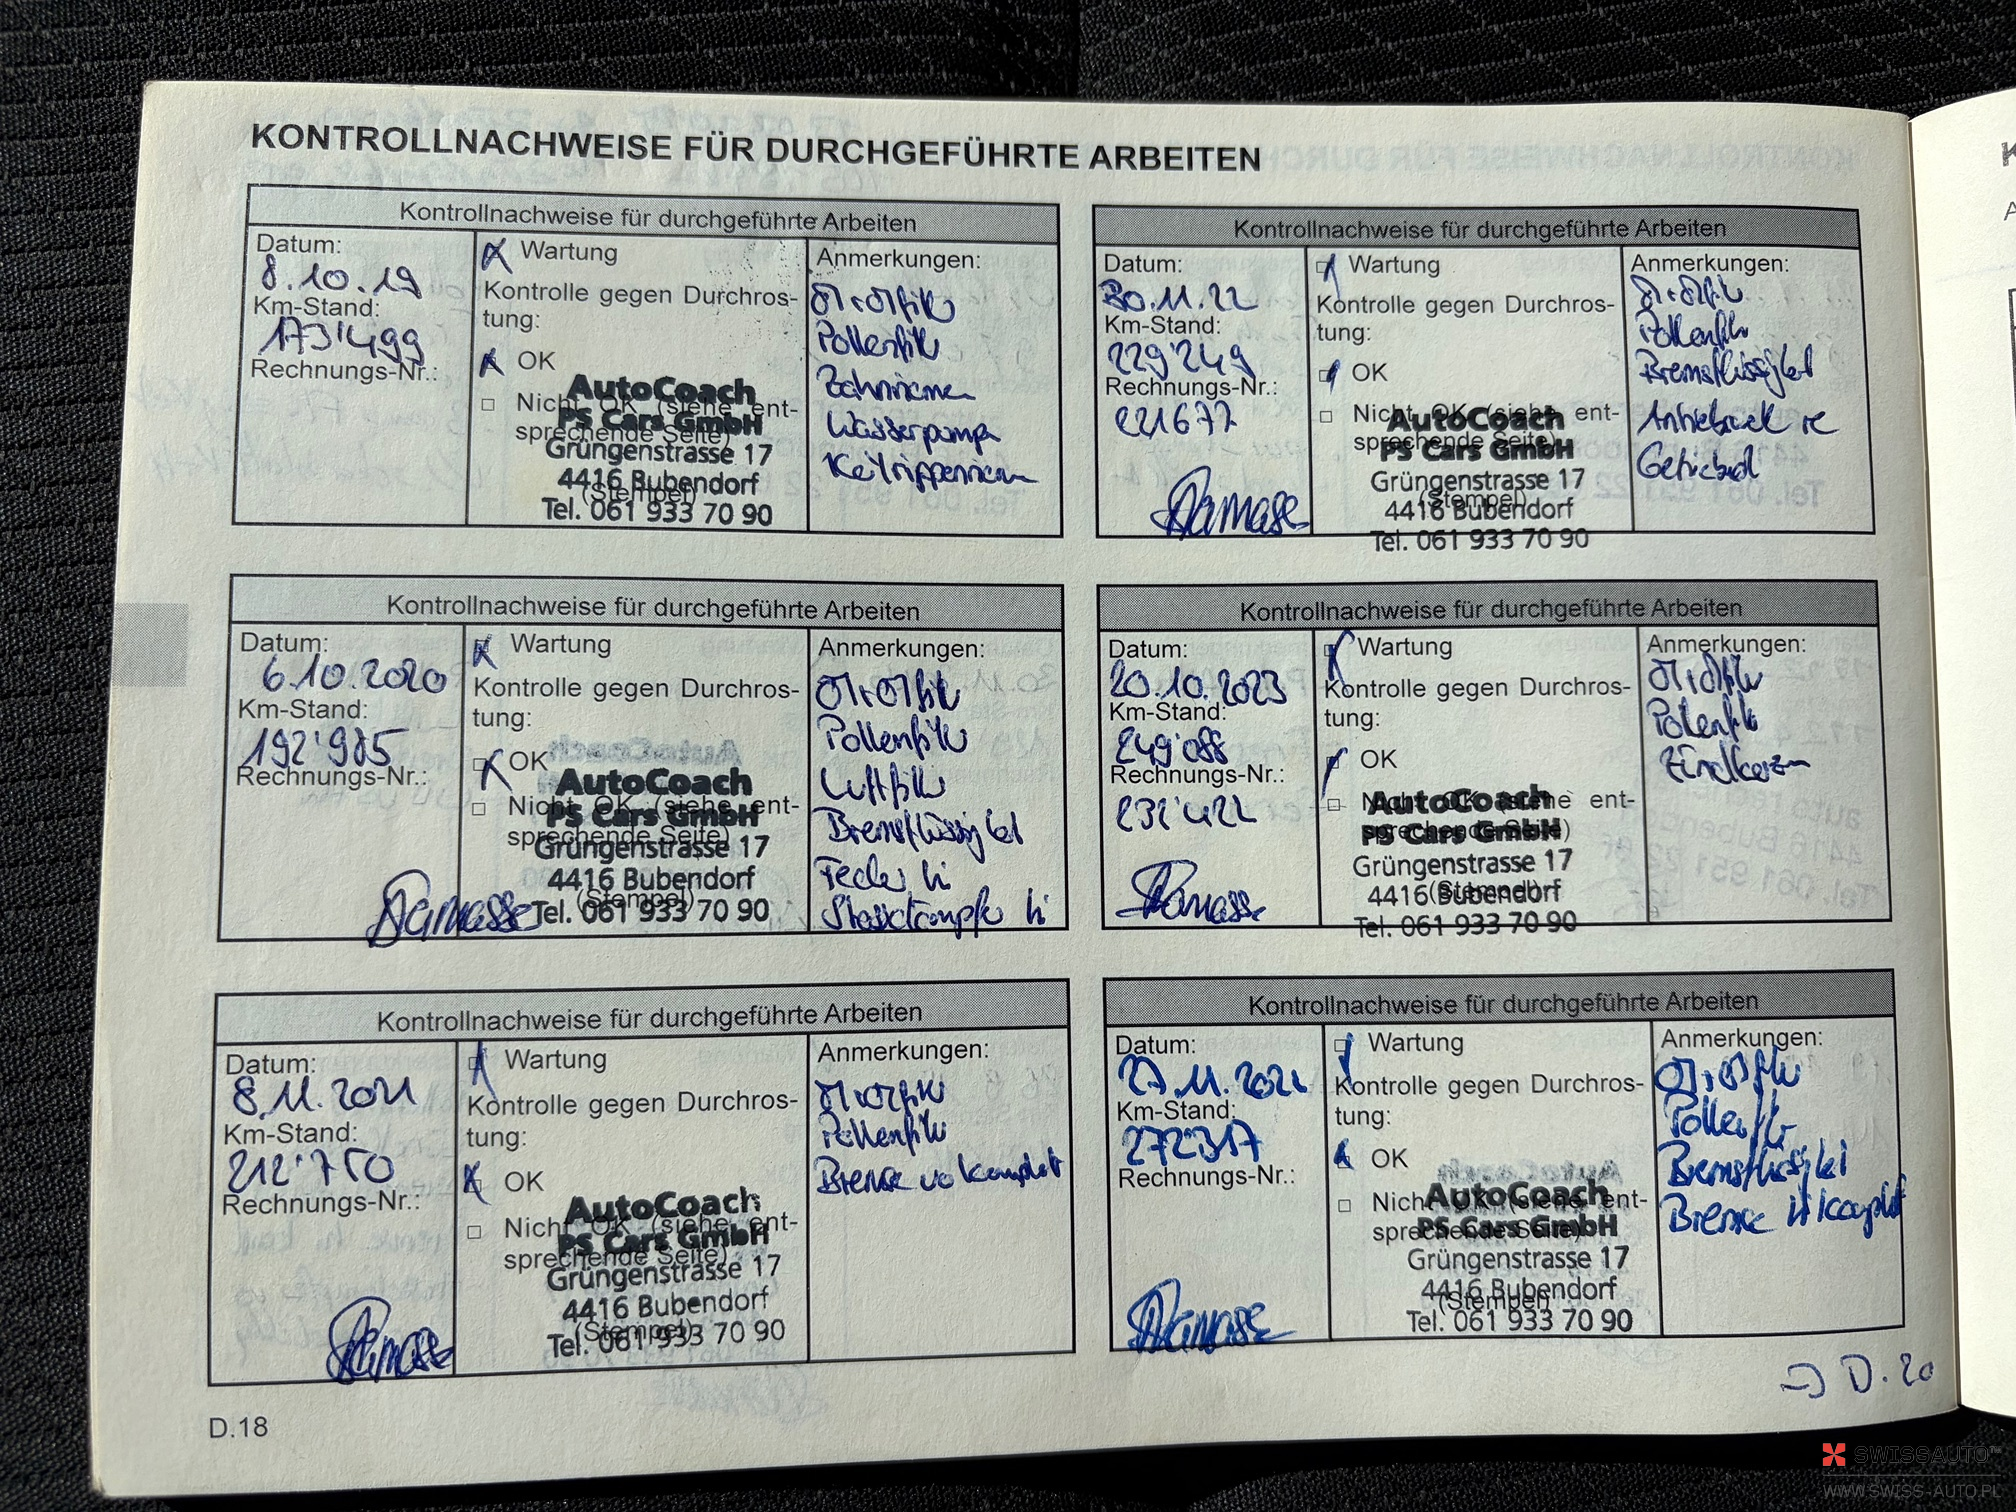 KONTROLLNACHWEISE FÜR DURCHGEFÜHRTE ARBEITEN
Kontrollnachweise für durchgeführte Arbeiten
Datum:
8.10.19
Km-Stand:
173'499
Rechnungs-Nr.:
Wartung
Kontrolle gegen Durchros-
tung:
OK
Nicht OK (siehe ent-
sprechende Seite)
(Stempel)
AutoCoach
PS Cars GmbH
Grüngenstrasse 17
4416 Bubendorf
Tel. 061 933 70 90
Anmerkungen:
Öl+Ölfilt
Pollenfilt
Zahnriemen
Wasserpumpe
Keilrippenriemen
Kontrollnachweise für durchgeführte Arbeiten
Datum:
6.10.2020
Km-Stand:
192'985
Rechnungs-Nr.:
Wartung
Kontrolle gegen Durchros-
tung:
OK
Nicht OK (siehe ent-
sprechende Seite)
(Stempel)
AutoCoach
PS Cars GmbH
Grüngenstrasse 17
4416 Bubendorf
Tel. 061 933 70 90
Anmerkungen:
Öl+Ölfilt
Pollenfilt
Luftfilt
Bremsflüssigkeit
Feder li
Stossdämpfer li
Kontrollnachweise für durchgeführte Arbeiten
Datum:
8.11.2021
Km-Stand:
212'750
Rechnungs-Nr.:
Wartung
Kontrolle gegen Durchros-
tung:
OK
Nicht OK (siehe ent-
sprechende Seite)
(Stempel)
AutoCoach
PS Cars GmbH
Grüngenstrasse 17
4416 Bubendorf
Tel. 061 933 70 90
Anmerkungen:
Öl+Ölfilt
Pollenfilt
Bremse vo komplet
Kontrollnachweise für durchgeführte Arbeiten
Datum:
30.11.22
Km-Stand:
229'249
Rechnungs-Nr.:
221677
Wartung
Kontrolle gegen Durchros-
tung:
OK
Nicht OK (siehe ent-
sprechende Seite)
(Stempel)
AutoCoach
PS Cars GmbH
Grüngenstrasse 17
4416 Bubendorf
Tel. 061 933 70 90
Anmerkungen:
Öl+Ölfilt
Pollenfilt
Bremsflüssigkeit
re
Getriebeöl
Kontrollnachweise für durchgeführte Arbeiten
Datum:
20.10.2023
Km-Stand:
249'088
Rechnungs-Nr.:
232'422
Wartung
Kontrolle gegen Durchros-
tung:
OK
Nicht OK (siehe ent-
sprechende Seite)
(Stempel)
AutoCoach
PS Cars GmbH
Grüngenstrasse 17
4416 Bubendorf
Tel. 061 933 70 90
Anmerkungen:
Öl+Ölfilt
Pollenfilt
Zündkerzen
Kontrollnachweise für durchgeführte Arbeiten
Datum:
27.11.2024
Km-Stand:
272'317
Rechnungs-Nr.:
Wartung
Kontrolle gegen Durchros-
tung:
OK
Nicht OK (siehe ent-
sprechende Seite)
(Stempel)
AutoCoach
PS Cars GmbH
Grüngenstrasse 17
4416 Bubendorf
Tel. 061 933 70 90
Anmerkungen:
Öl+Ölfilt
Pollenfilt
Bremsflüssigkei
Bremse komplet
=> D.20
D.18
SWISSAUTO
WWW.SWISS-AUTO.PL